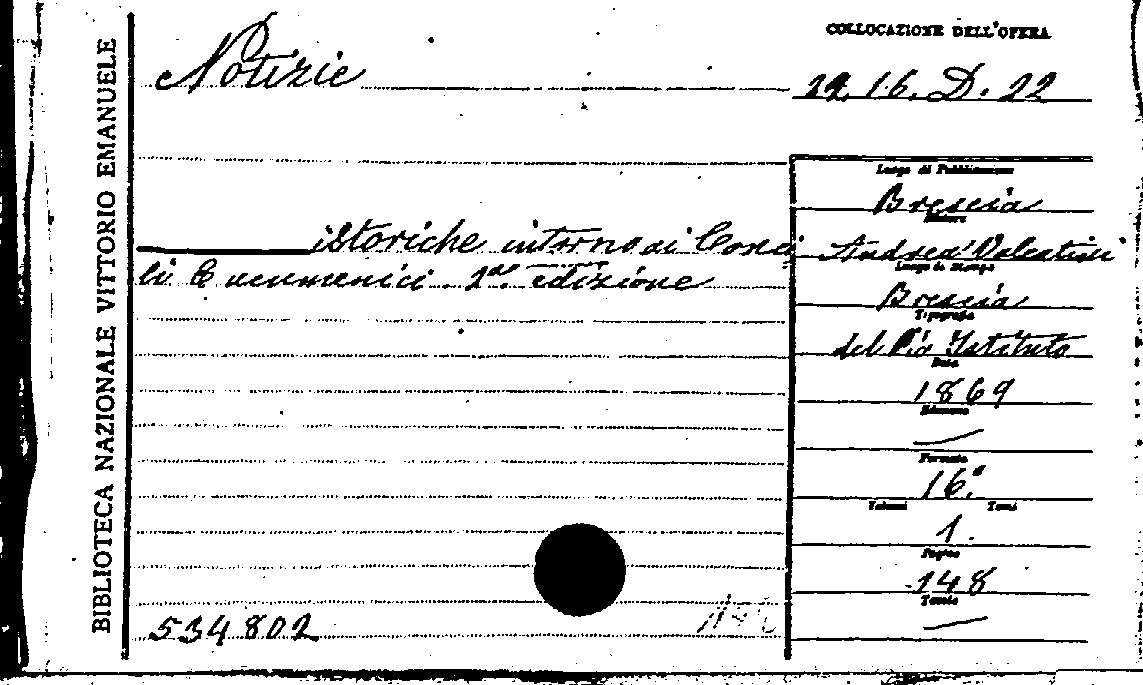 BIBLIOTECA NAZIONALE VITTORIO EMANUELE
COLLOCAZIONE DELL'OPERA
Notizie
16. D. 22
istoriche intorno ai Conci
li Ecumenici. 2a. edizione
Luogo di Pubblicazione
Brescia
Editore
Andrea Valentini
Luogo di Stampa
Brescia
Tipografia
del Pio Istituto
Data
1869
Edizione
—
Formato
16.°
Volumi Tomi
1.
Pagine
148
Tavole
—
534802